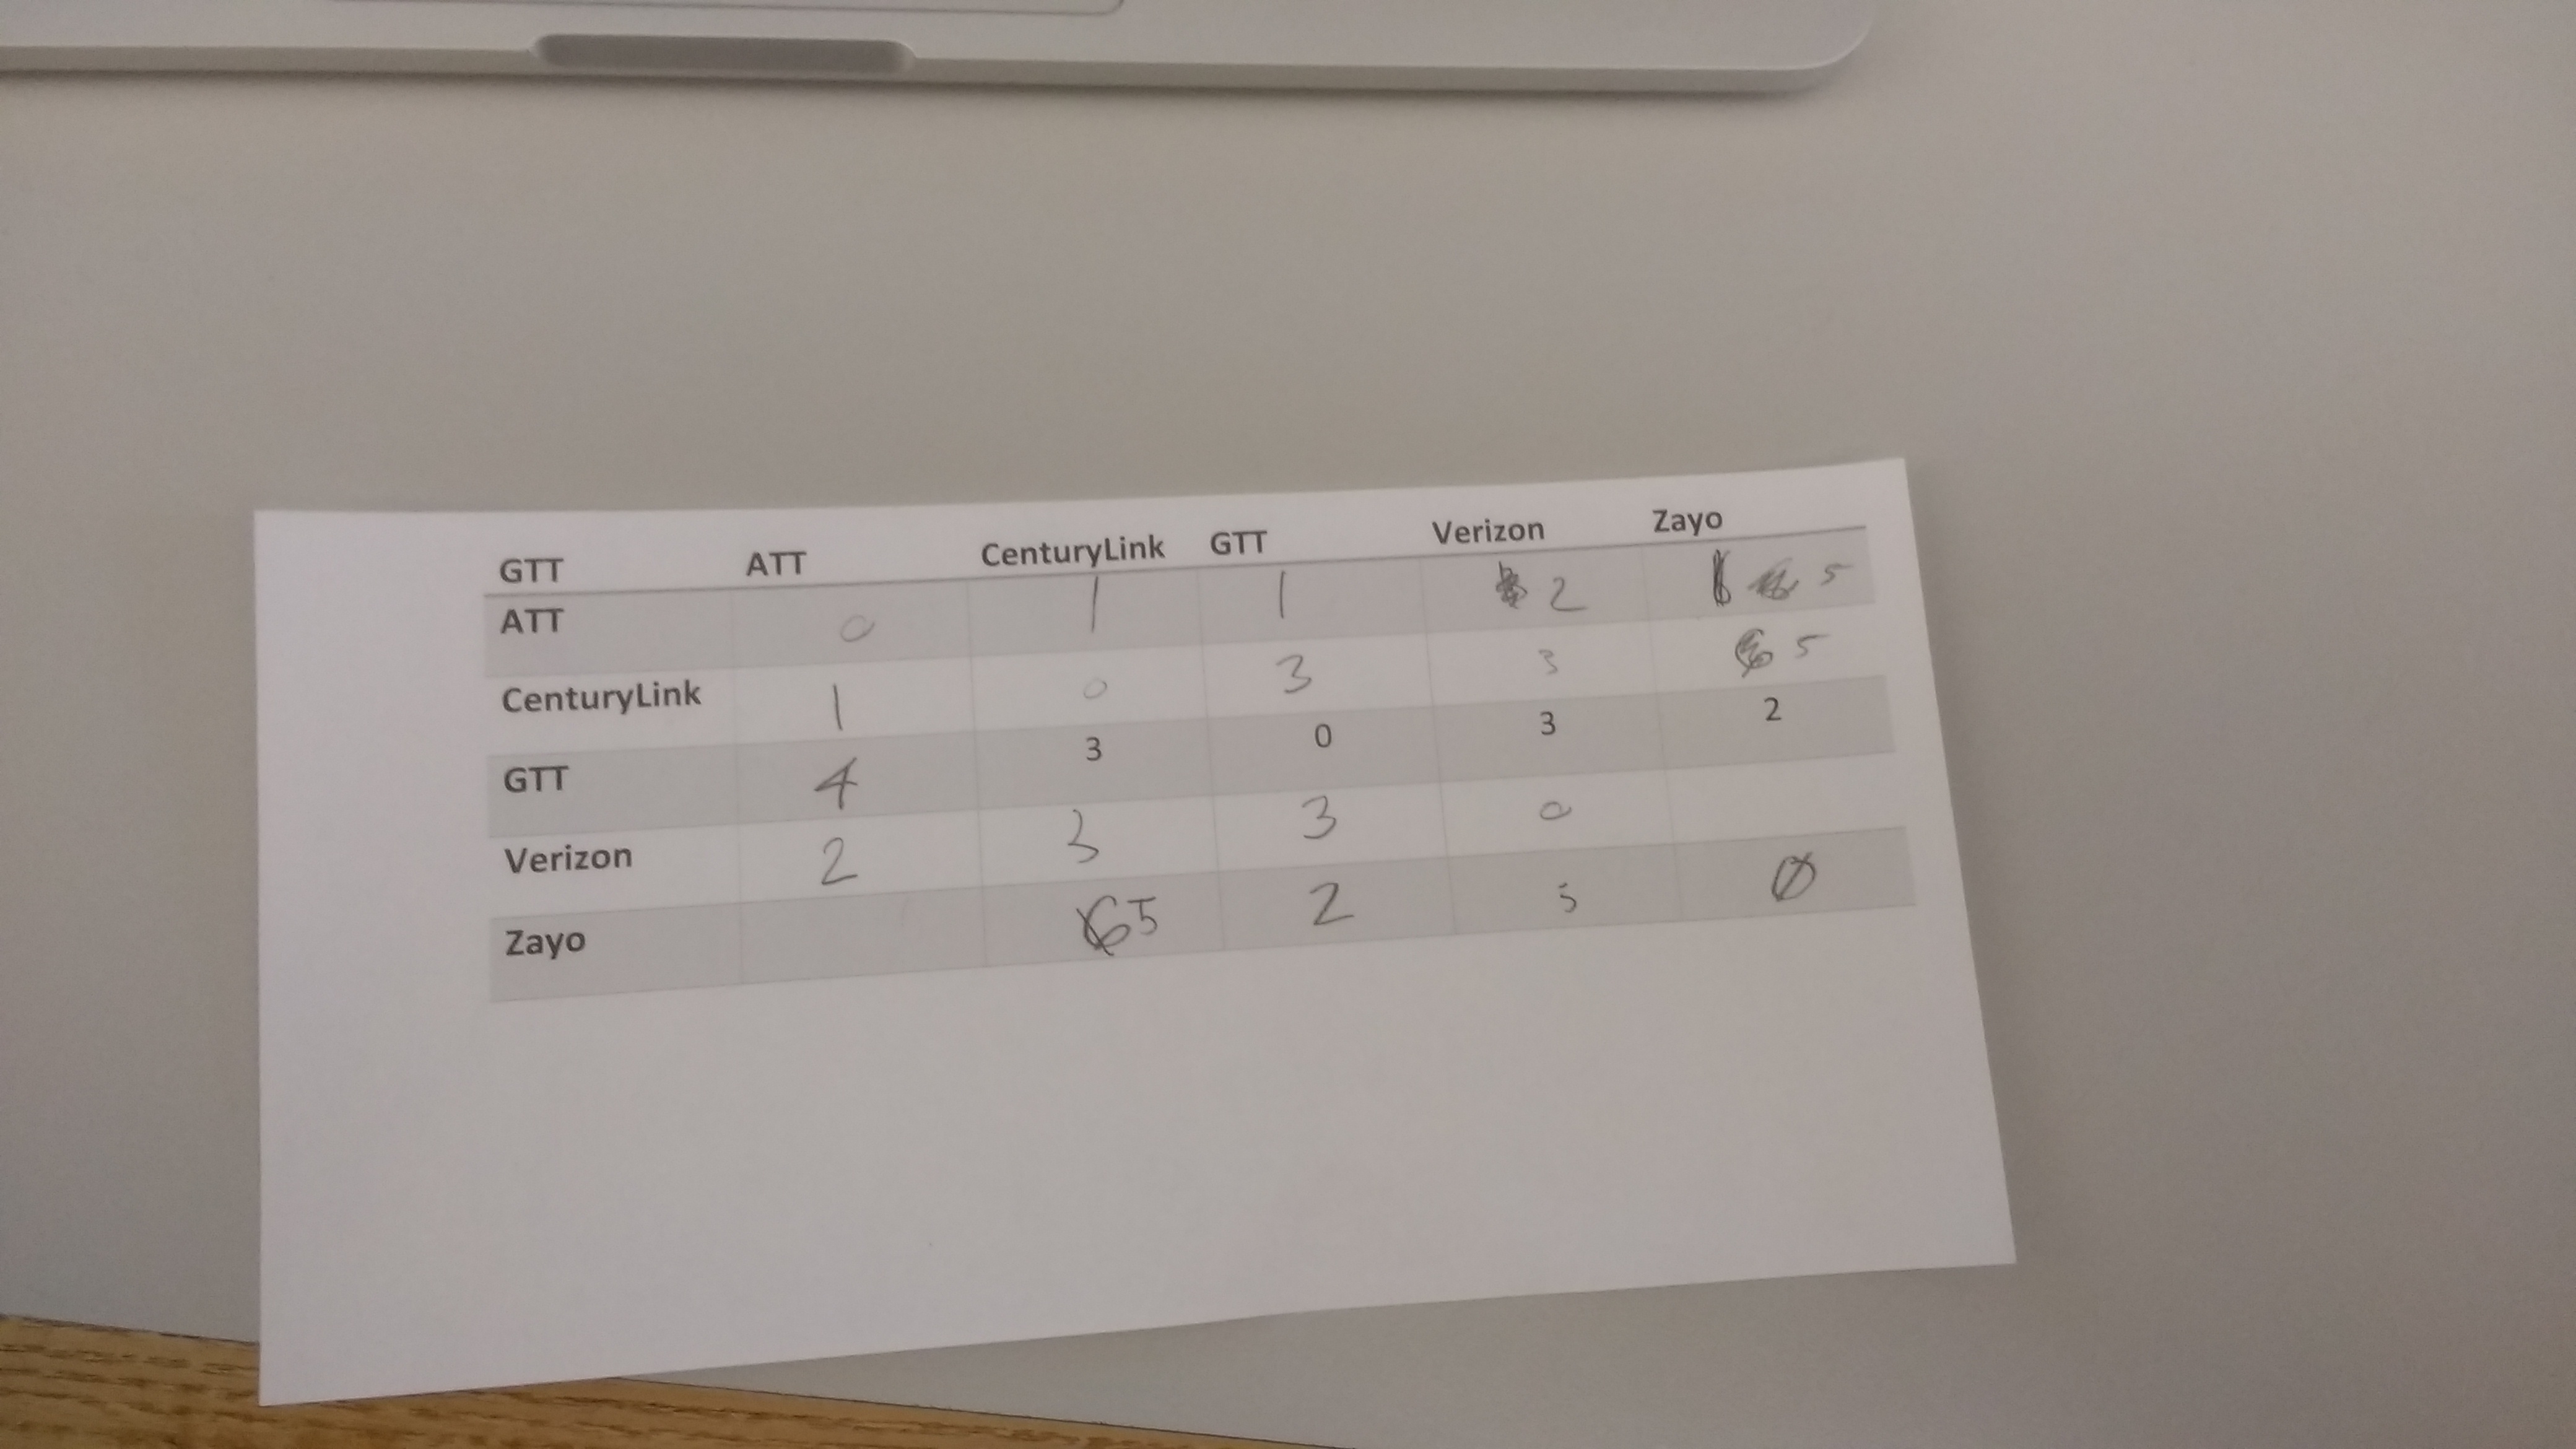 GTT ATT CenturyLink GTT Verizon Zayo
ATT 0 1 1 2 5
CenturyLink 1 0 3 3 5
GTT 4 3 0 3 2
Verizon 2 3 3 0
Zayo 6 5 2 5 0